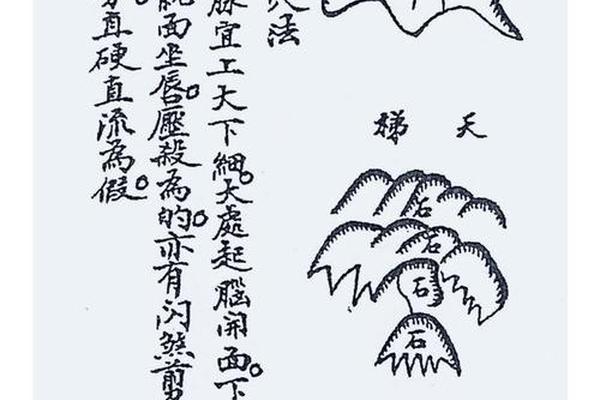 天梯
石
石
石
石
法
宜工大下細。大處起腦開面。下
面坐唇。壓殺為的。亦有闪煞剪
直硬直流為假。